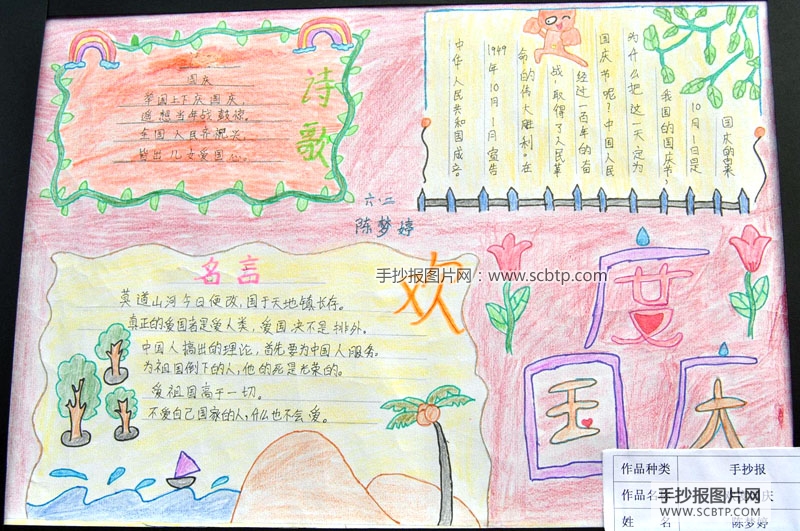 诗歌
国庆
举国上下庆国庆,
遥想当年战鼓擂。
全国人民齐振兴,
皆出儿女爱国心。
国庆的由来
10月1日是
我国的国庆节,
为什么把这一天定为
国庆节呢?中国人民
经过一百年的奋
战,取得了人民革
命的伟大胜利。在
1949年10月1日宣告
中华人民共和国成立。
六.二
陈梦婷
手抄报图片网:www.scbtp.com
名言
莫道山河今日便改,国于天地镇长存。
真正的爱国者是爱人类,爱国决不是排外。
中国人搞出的理论,首先要为中国人服务。
为祖国倒下的人,他的死是光荣的。
爱祖国高于一切。
不爱自己国家的人,什么也不会爱。
欢
度
国庆
作品种类 手抄报
作品名 庆
姓 名 陈梦婷
手抄报图片网
SCBTP.COM